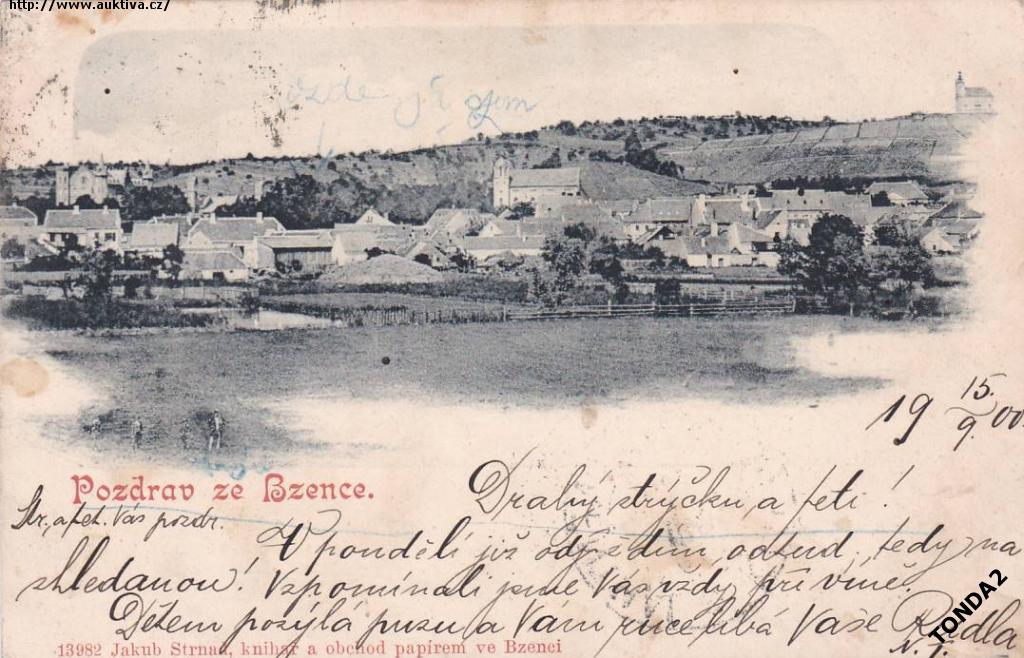 http://www.auktiva.cz/
19 15./9. 00.
Pozdrav ze Bzence.
Drahý strýčku a teti!
Str. a tet. Vás pozdr.
V pondělí již odjíždím odtud, tedy na
shledanou! Vzpomínali jsme Vás vždy při víně.
Dětem posýlá pusu a Vám ruce líbá Vaše
TONDA2
13982 Jakub Strnad, knihař a obchod papírem ve Bzenci